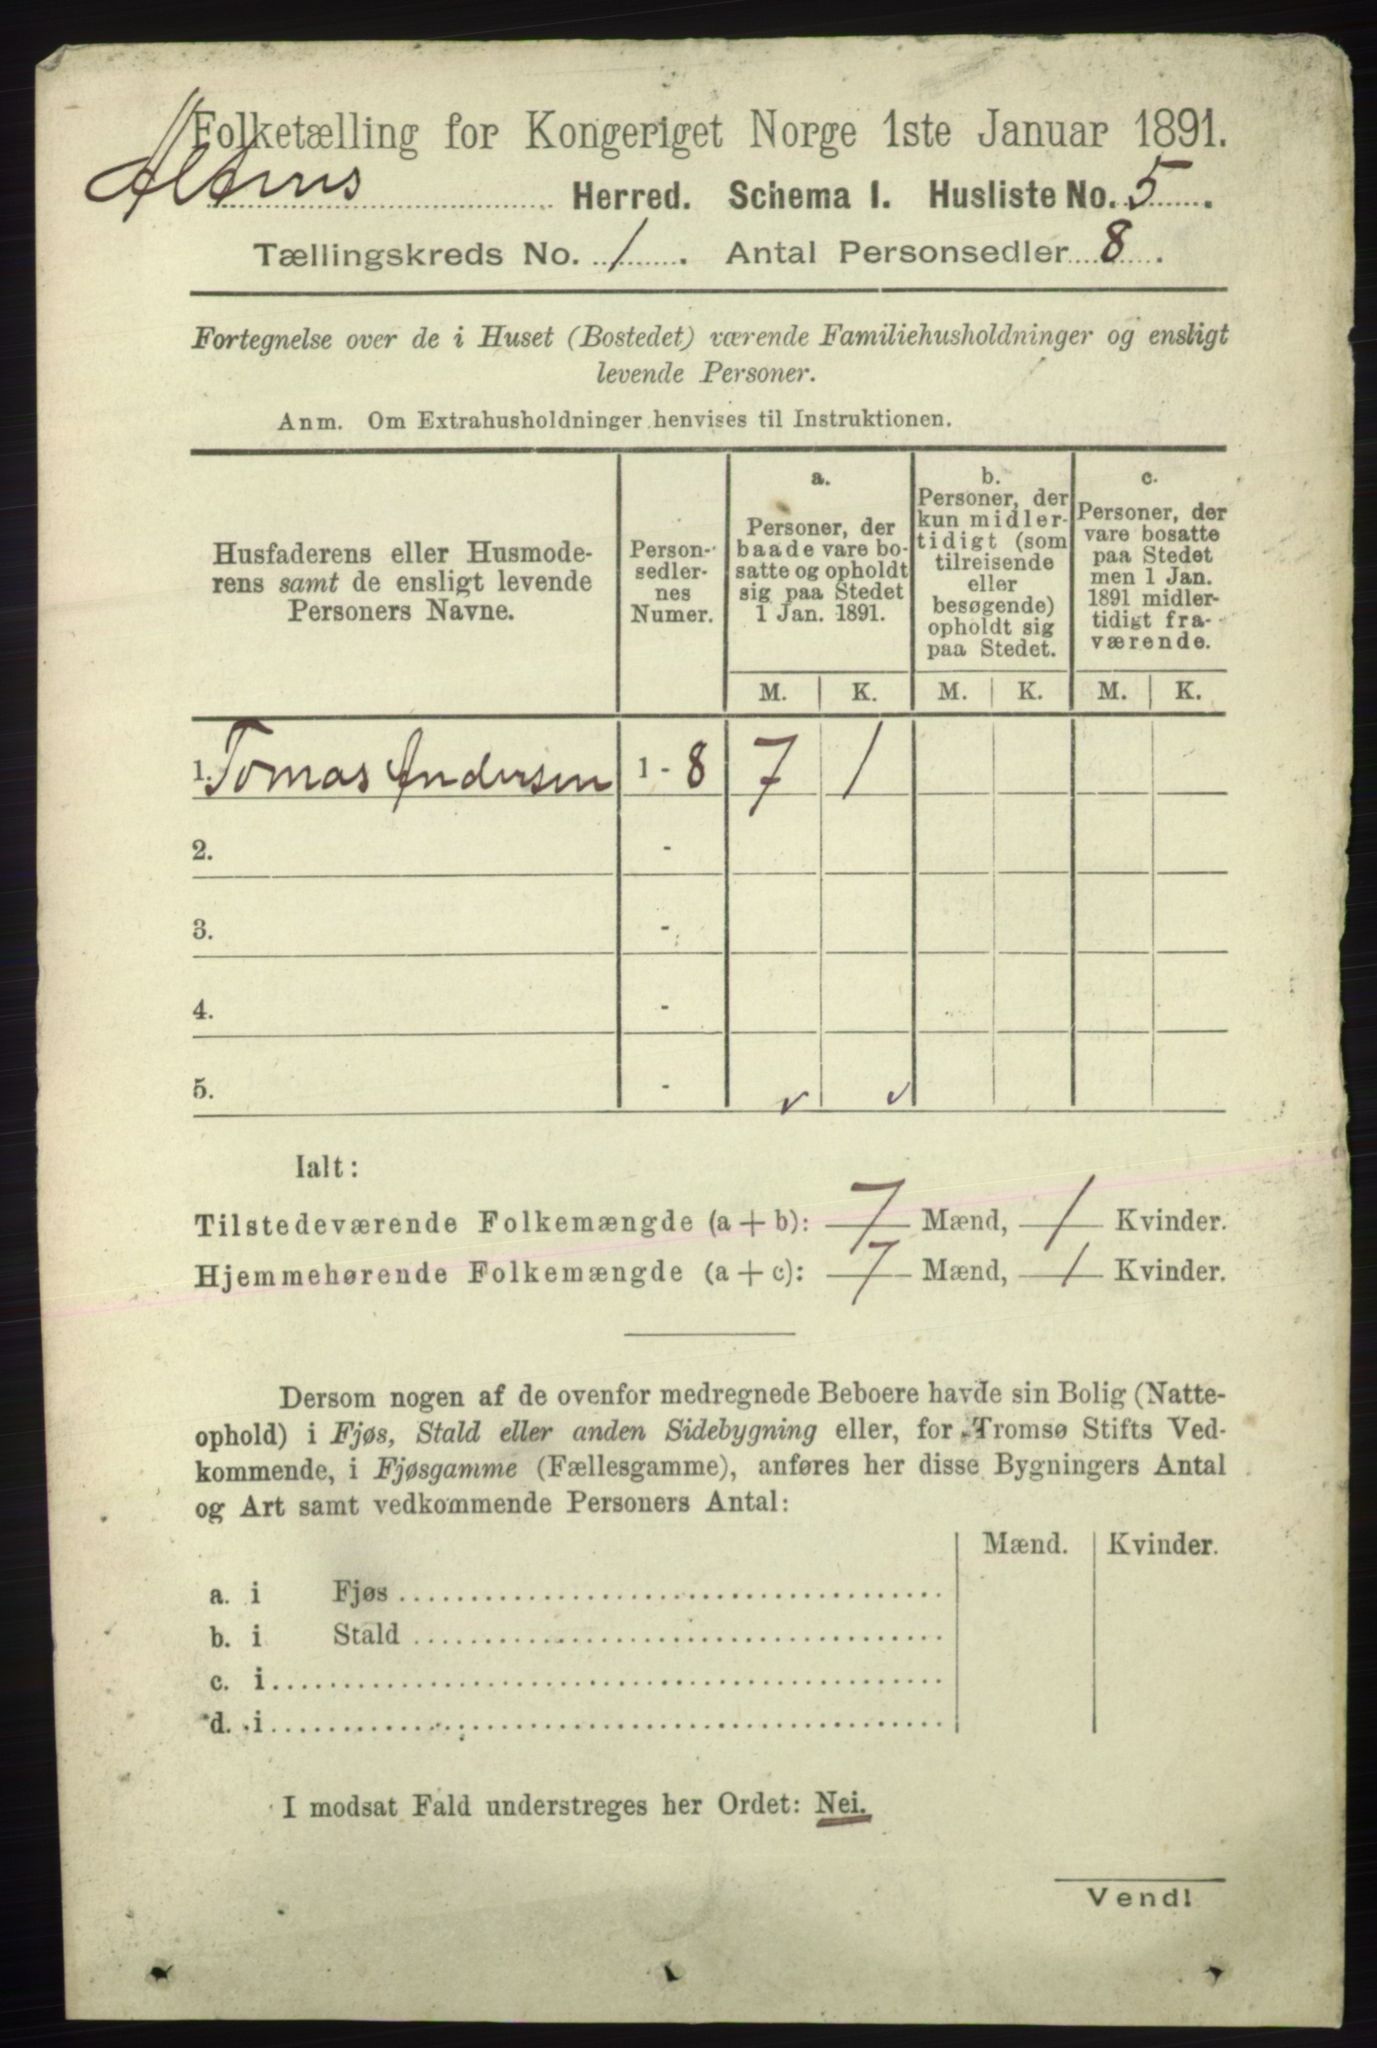 Folketælling for Kongeriget Norge 1ste Januar 1891.
Altens Herred. Schema I. Husliste No. 5.
Tællingskreds No. 1. Antal Personsedler 8.
Fortegnelse over de i Huset (Bostedet) værende Familiehusholdninger og ensligt
levende Personer.
Anm. Om Extrahusholdninger henvises til Instruktionen.
Husfaderens eller Husmode-
rens samt de ensligt levende
Personers Navne.
Person-
sedler-
nes
Numer.
a.
Personer, der
baade vare bo-
satte og opholdt
sig paa Stedet
1 Jan. 1891.
b.
Personer, der
kun midler-
tidigt (som
tilreisende
eller
besøgende)
opholdt sig
paa Stedet.
c.
Personer, der
vare bosatte
paa Stedet
men 1 Jan.
1891 midler-
tidigt fra-
værende.
M. K. M. K. M. K.
1. Tomas Andersen 1 - 8 7 1
2. -
3. -
4. -
5. -
Ialt:
Tilstedeværende Folkemængde (a + b): 7 Mænd, 1 Kvinder.
Hjemmehørende Folkemængde (a + c): 7 Mænd, 1 Kvinder.
Dersom nogen af de ovenfor medregnede Beboere havde sin Bolig (Natte-
ophold) i Fjøs, Stald eller anden Sidebygning eller, for Tromsø Stifts Ved-
kommende, i Fjøsgamme (Fællesgamme), anføres her disse Bygningers Antal
og Art samt vedkommende Personers Antal:
Mænd. Kvinder.
a. i Fjøs
b. i Stald
c. i
d. i
I modsat Fald understreges her Ordet: Nei.
Vend!